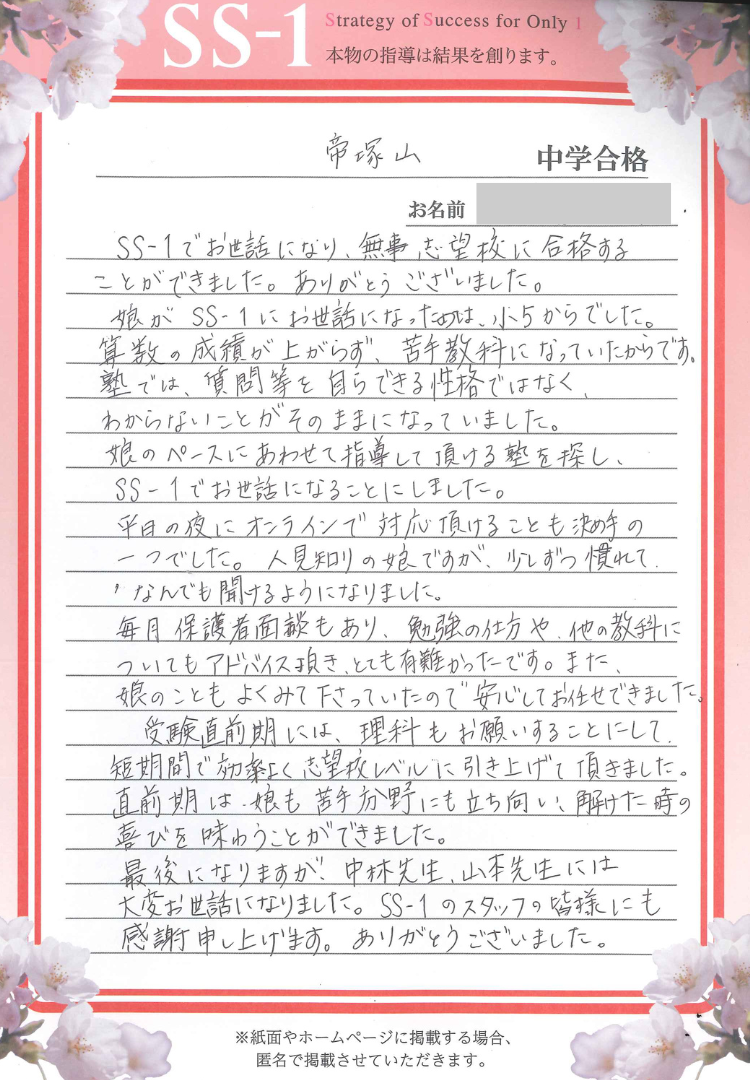 SS-1
Strategy of Success for Only 1
本物の指導は結果を創ります。
帝塚山 中学合格
お名前
SS-1でお世話になり、無事志望校に合格する
ことができました。ありがとうございました。
娘がSS-1にお世話になったのは、小5からでした。
算数の成績が上がらず、苦手教科になっていたからです。
塾では、質問等を自らできる性格ではなく、
わからないことがそのままになっていました。
娘のペースにあわせて指導して頂ける塾を探し、
SS-1でお世話になることにしました。
平日の夜にオンラインで対応頂けることも決め手の
一つでした。人見知りの娘ですが、少しずつ慣れて、
なんでも聞けるようになりました。
毎月保護者面談もあり、勉強の仕方や、他の教科に
ついてもアドバイス頂き、とても有難かったです。また、
娘のこともよくみて下さっていたので安心してお任せできました。
受験直前期には、理科もお願いすることにして、
短期間で効率よく志望校レベルに引き上げて頂きました。
直前期は、娘も苦手分野にも立ち向い、解けた時の
喜びを味わうことができました。
最後になりますが、中林先生、山本先生には
大変お世話になりました。SS-1のスタッフの皆様にも
感謝申し上げます。ありがとうございました。
※紙面やホームページに掲載する場合、
匿名で掲載させていただきます。